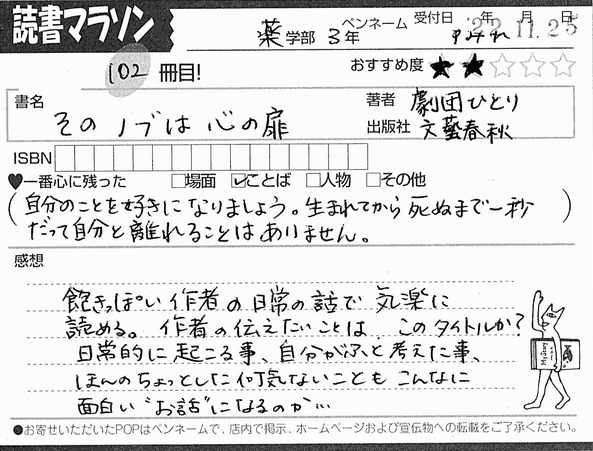 読書マラソン
薬学部 3年 ペンネーム すみれ 受付日 年 月 日 22.11.25
102 冊目!
おすすめ度 ★★☆☆☆
書名 そのノブは心の扉
著者 劇団ひとり
出版社 文藝春秋
ISBN
♥一番心に残った □場面 ☑ことば □人物 □その他
(自分のことを好きになりましょう。生まれてから死ぬまで一秒
だって自分と離れることはありません。)
感想
飽きっぽい作者の日常の話で気楽に
読める。作者の伝えたいことは このタイトルか?
日常的に起こる事、自分がふと考えた事、
ほんのちょっとした何気ないこともこんなに
面白い"お話"になるのか…
Mystery
●お寄せいただいたPOPはペンネームで、店内で掲示、ホームページおよび宣伝物への転載をご了承ください。